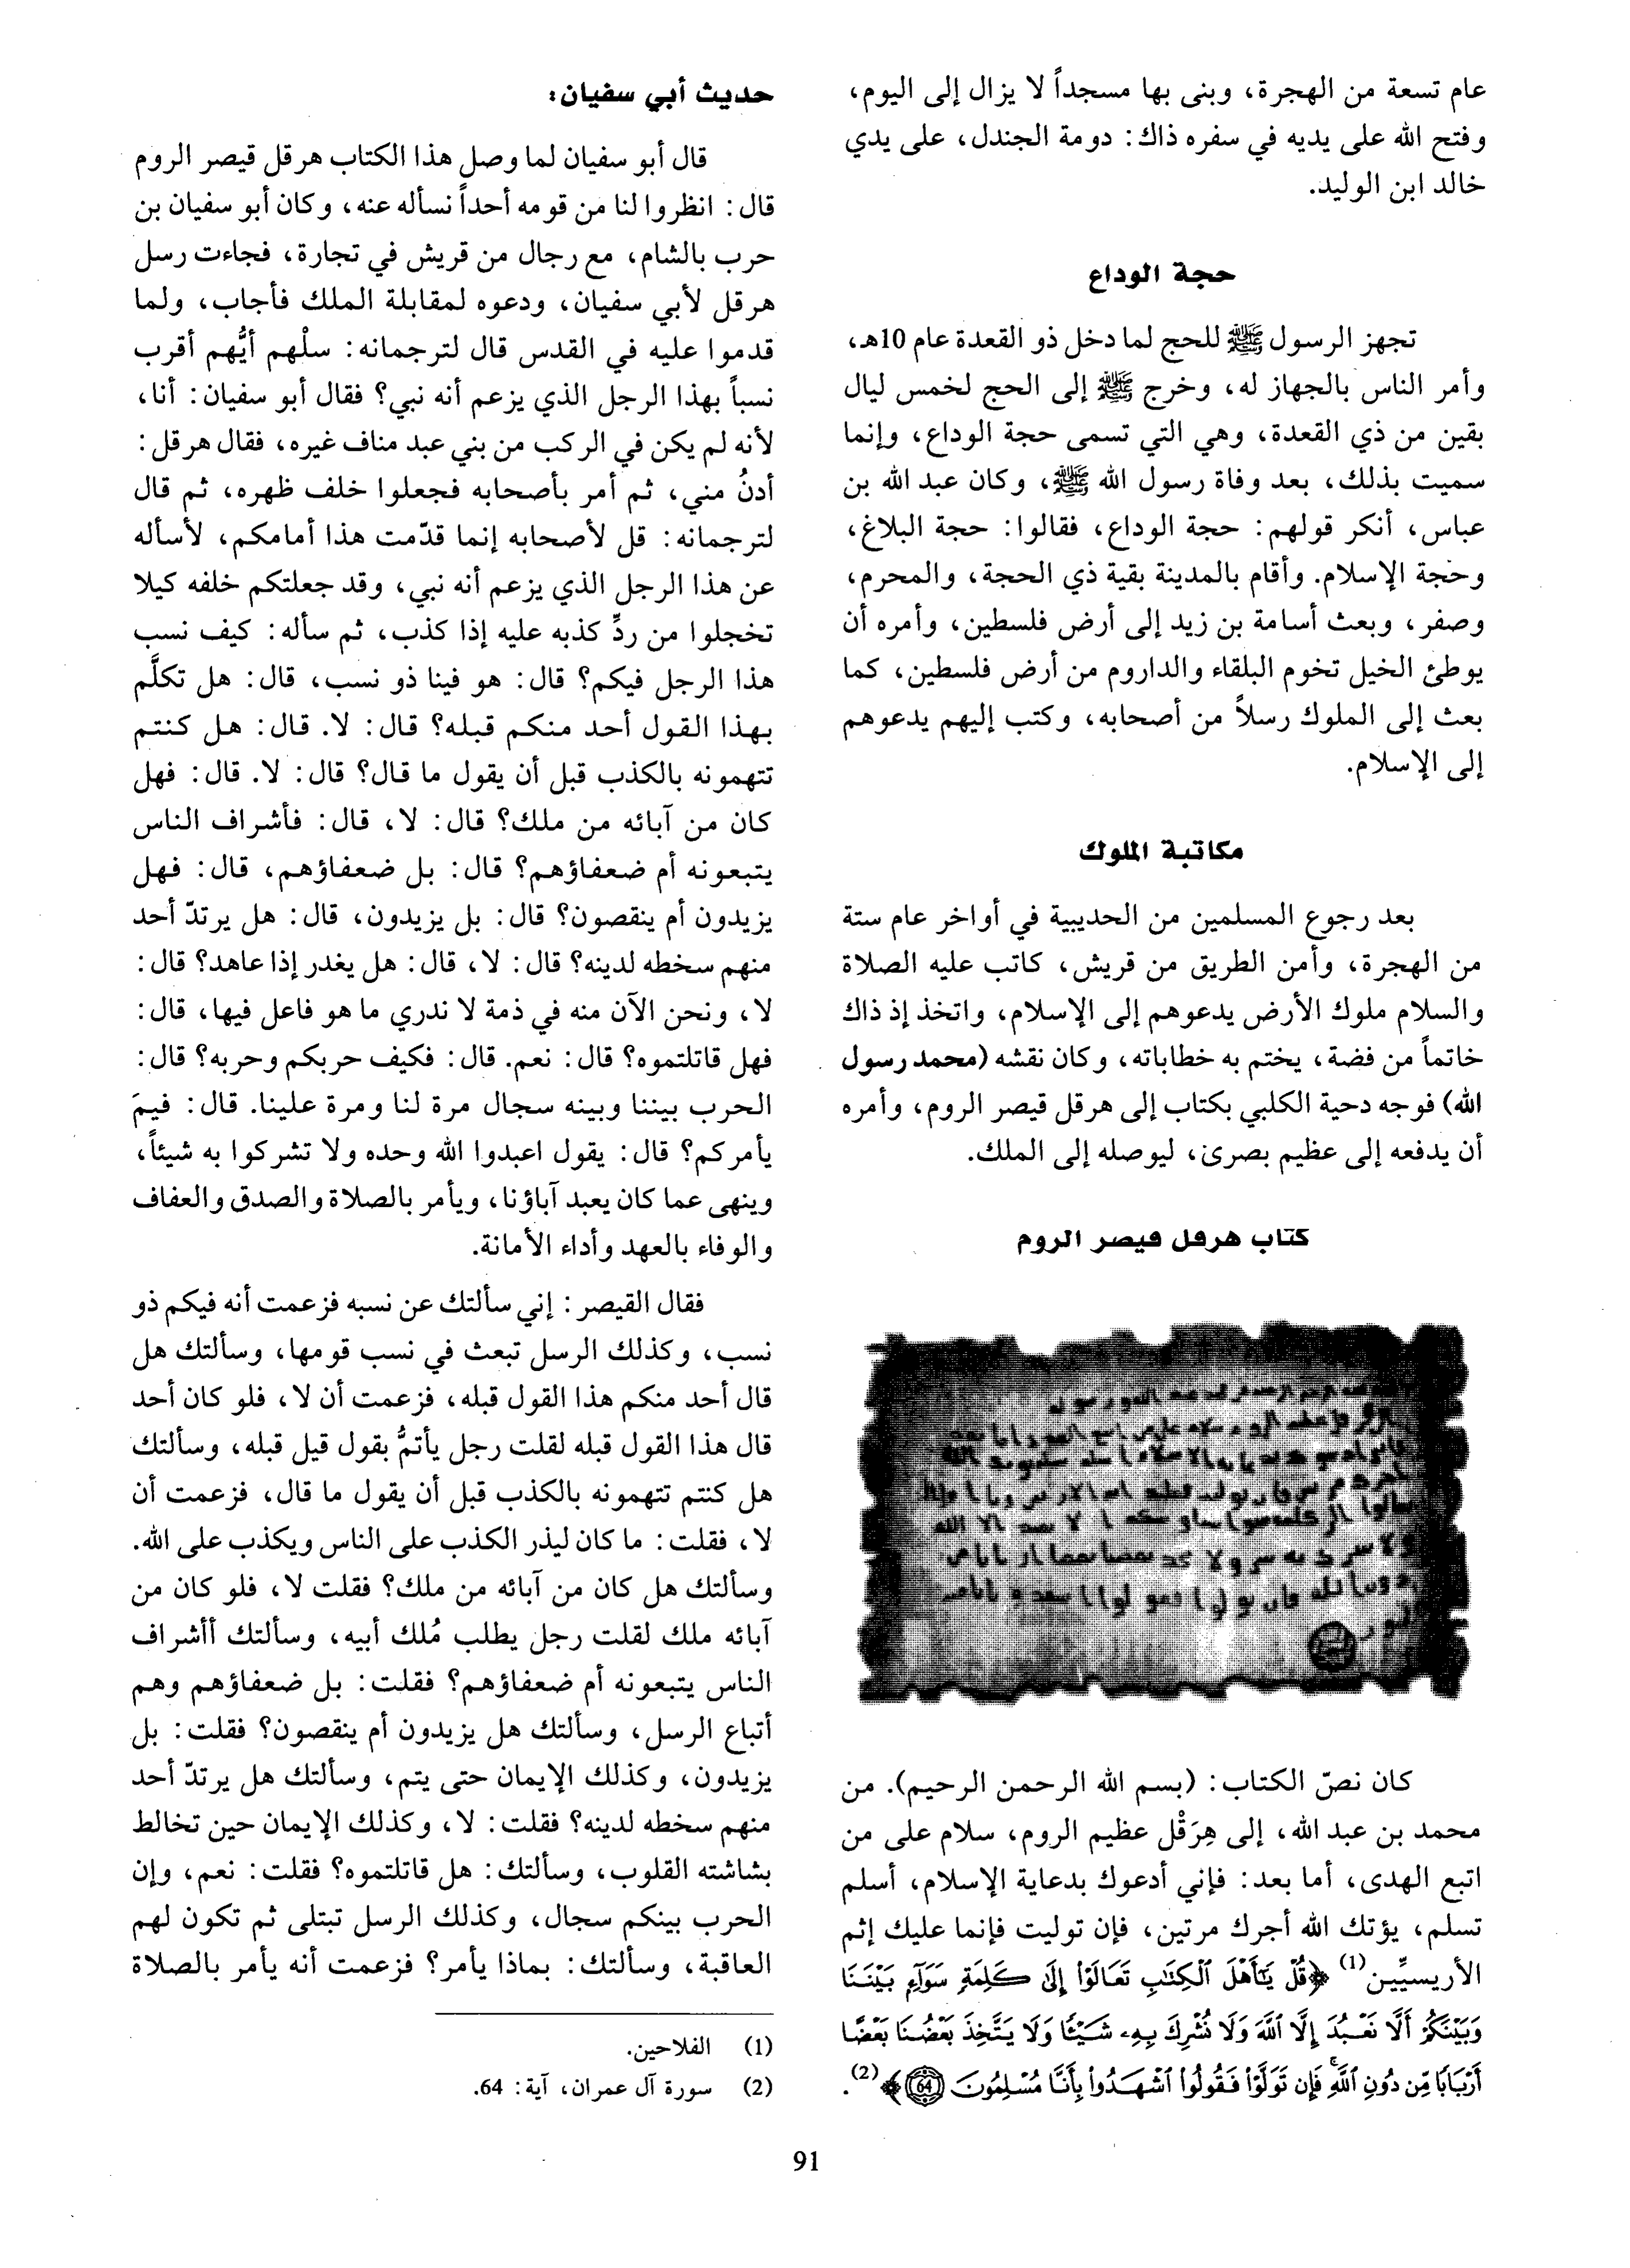 عام تسعة من الهجرة، وبنى بها مسجداً لا يزال إلى اليوم،
وفتح الله على يديه في سفره ذاك: دومة الجندل، على يدي
خالد ابن الوليد.
حجة الوداع
تجهز الرسول ﷺ للحج لما دخل ذو القعدة عام 10هـ،
وأمر الناس بالجهاز له، وخرج ﷺ إلى الحج لخمس ليال
بقين من ذي القعدة، وهي التي تسمى حجة الوداع، وإنما
سميت بذلك، بعد وفاة رسول الله ﷺ، وكان عبد الله بن
عباس، أنكر قولهم: حجة الوداع، فقالوا: حجة البلاغ،
وحجة الإسلام. وأقام بالمدينة بقية ذي الحجة، والمحرم،
وصفر، وبعث أسامة بن زيد إلى أرض فلسطين، وأمره أن
يوطئ الخيل تخوم البلقاء والداروم من أرض فلسطين، كما
بعث إلى الملوك رسلاً من أصحابه، وكتب إليهم يدعوهم
إلى الإسلام.
مكاتبة الملوك
بعد رجوع المسلمين من الحديبية في أواخر عام ستة
من الهجرة، وأمن الطريق من قريش، كاتب عليه الصلاة
والسلام ملوك الأرض يدعوهم إلى الإسلام، واتخذ إذ ذاك
خاتماً من فضة، يختم به خطاباته، وكان نقشه (محمد رسول
الله) فوجه دحية الكلبي بكتاب إلى هرقل قيصر الروم، وأمره
أن يدفعه إلى عظيم بصرى، ليوصله إلى الملك.
كتاب هرقل قيصر الروم
كان نصّ الكتاب: (بسم الله الرحمن الرحيم). من
محمد بن عبد الله، إلى هِرَقْل عظيم الروم، سلام على من
اتبع الهدى، أما بعد: فإني أدعوك بدعاية الإسلام، أسلم
تسلم، يؤتك الله أجرك مرتين، فإن توليت فإنما عليك إثم
الأريسيِّين(1) ﴿قُلْ يَٰٓأَهْلَ ٱلْكِتَٰبِ تَعَالَوْا۟ إِلَىٰ كَلِمَةٍ سَوَآءٍۭ بَيْنَنَا
وَبَيْنَكُمْ أَلَّا نَعْبُدَ إِلَّا ٱللَّهَ وَلَا نُشْرِكَ بِهِۦ شَيْـًٔا وَلَا يَتَّخِذَ بَعْضُنَا بَعْضًا
أَرْبَابًا مِّن دُونِ ٱللَّهِ ۚ فَإِن تَوَلَّوْا۟ فَقُولُوا۟ ٱشْهَدُوا۟ بِأَنَّا مُسْلِمُونَ 64﴾(2).
حديث أبي سفيان:
قال أبو سفيان لما وصل هذا الكتاب هرقل قيصر الروم
قال: انظروا لنا من قومه أحداً نسأله عنه، وكان أبو سفيان بن
حرب بالشام، مع رجال من قريش في تجارة، فجاءت رسل
هرقل لأبي سفيان، ودعوه لمقابلة الملك فأجاب، ولما
قدموا عليه في القدس قال لترجمانه: سلْهم أيُّهم أقرب
نسباً بهذا الرجل الذي يزعم أنه نبي؟ فقال أبو سفيان: أنا،
لأنه لم يكن في الركب من بني عبد مناف غيره، فقال هرقل:
أدنُ مني، ثم أمر بأصحابه فجعلوا خلف ظهره، ثم قال
لترجمانه: قل لأصحابه إنما قدّمت هذا أمامكم، لأسأله
عن هذا الرجل الذي يزعم أنه نبي، وقد جعلتكم خلفه كيلا
تخجلوا من ردِّ كذبه عليه إذا كذب، ثم سأله: كيف نسب
هذا الرجل فيكم؟ قال: هو فينا ذو نسب، قال: هل تكلَّم
بهذا القول أحد منكم قبله؟ قال: لا. قال: هل كنتم
تتهمونه بالكذب قبل أن يقول ما قال؟ قال: لا. قال: فهل
كان من آبائه من ملك؟ قال: لا، قال: فأشراف الناس
يتبعونه أم ضعفاؤهم؟ قال: بل ضعفاؤهم، قال: فهل
يزيدون أم ينقصون؟ قال: بل يزيدون، قال: هل يرتدّ أحد
منهم سخطه لدينه؟ قال: لا، قال: هل يغدر إذا عاهد؟ قال:
لا، ونحن الآن منه في ذمة لا ندري ما هو فاعل فيها، قال:
فهل قاتلتموه؟ قال: نعم. قال: فكيف حربكم وحربه؟ قال:
الحرب بيننا وبينه سجال مرة لنا ومرة علينا. قال: فيمَ
يأمركم؟ قال: يقول اعبدوا الله وحده ولا تشركوا به شيئاً،
وينهى عما كان يعبد آباؤنا، ويأمر بالصلاة والصدق والعفاف
والوفاء بالعهد وأداء الأمانة.
فقال القيصر: إني سألتك عن نسبه فزعمت أنه فيكم ذو
نسب، وكذلك الرسل تبعث في نسب قومها، وسألتك هل
قال أحد منكم هذا القول قبله، فزعمت أن لا، فلو كان أحد
قال هذا القول قبله لقلت رجل يأتمُّ بقول قيل قبله، وسألتك
هل كنتم تتهمونه بالكذب قبل أن يقول ما قال، فزعمت أن
لا، فقلت: ما كان ليذر الكذب على الناس ويكذب على الله.
وسألتك هل كان من آبائه من ملك؟ فقلت لا، فلو كان من
آبائه ملك لقلت رجل يطلب مُلك أبيه، وسألتك أأشراف
الناس يتبعونه أم ضعفاؤهم؟ فقلت: بل ضعفاؤهم وهم
أتباع الرسل، وسألتك هل يزيدون أم ينقصون؟ فقلت: بل
يزيدون، وكذلك الإيمان حتى يتم، وسألتك هل يرتدّ أحد
منهم سخطه لدينه؟ فقلت: لا، وكذلك الإيمان حين تخالط
بشاشته القلوب، وسألتك: هل قاتلتموه؟ فقلت: نعم، وإن
الحرب بينكم سجال، وكذلك الرسل تبتلى ثم تكون لهم
العاقبة، وسألتك: بماذا يأمر؟ فزعمت أنه يأمر بالصلاة
(1) الفلاحين.
(2) سورة آل عمران، آية: 64.
91